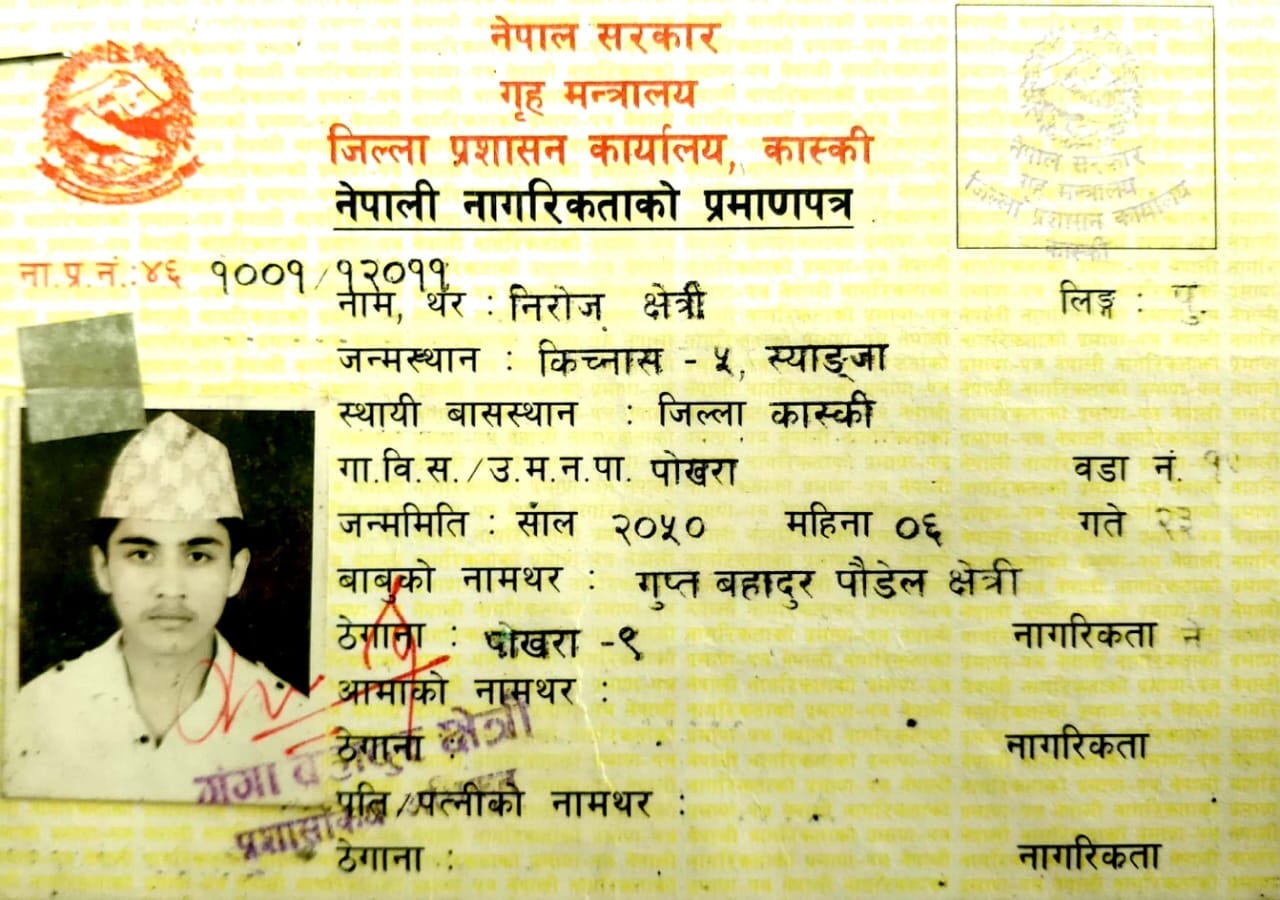 नेपाल सरकार
गृह मन्त्रालय
जिल्ला प्रशासन कार्यालय, कास्की
नेपाली नागरिकताको प्रमाणपत्र
नेपाल सरकार
गृह मन्त्रालय
जिल्ला प्रशासन कार्यालय
कास्की
ना.प्र.नं.:४६ १००१/१२०११
नाम, थर : निरोज क्षेत्री लिङ्ग : पु.
जन्मस्थान : किच्नास - ५, स्याङ्जा
स्थायी बासस्थान : जिल्ला कास्की
गा.वि.स./उ.म.न.पा. पोखरा वडा नं.
जन्ममिति : साल २०५० महिना ०६ गते २३
बाबुको नामथर : गुप्त बहादुर पौडेल क्षेत्री
ठेगाना : पोखरा -९ नागरिकता ने
आमाको नामथर :
ठेगाना : नागरिकता
पति/पत्नीको नामथर :
ठेगाना : नागरिकता
गंगा बहादुर क्षेत्री